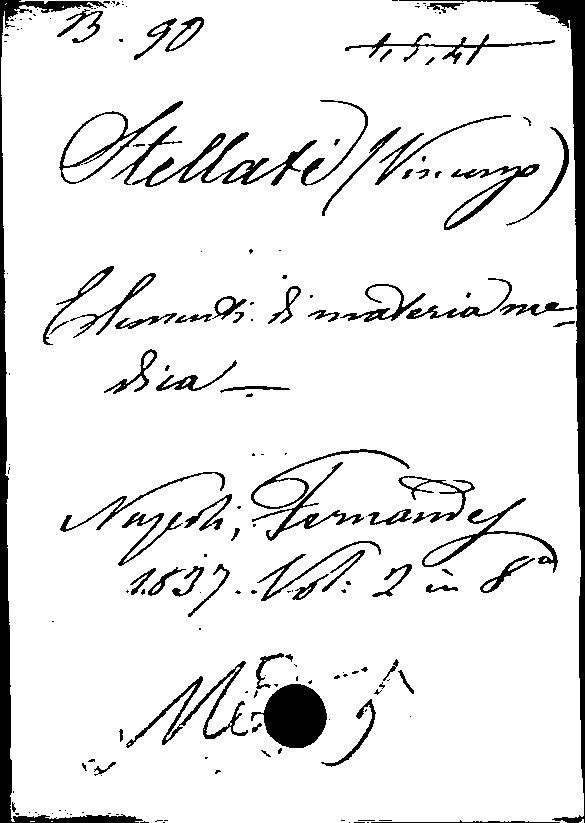 B. 90
1,5,41
Stellati (Vincenzo)
Elementi di materia me-
dica —
Napoli, Fernandes
1837. Vol: 2 in 8º